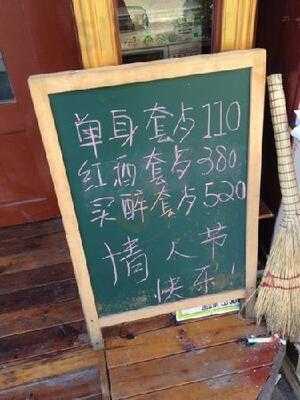 单身套歺110
红酒套歺380
买醉套歺520
情人节
快乐！